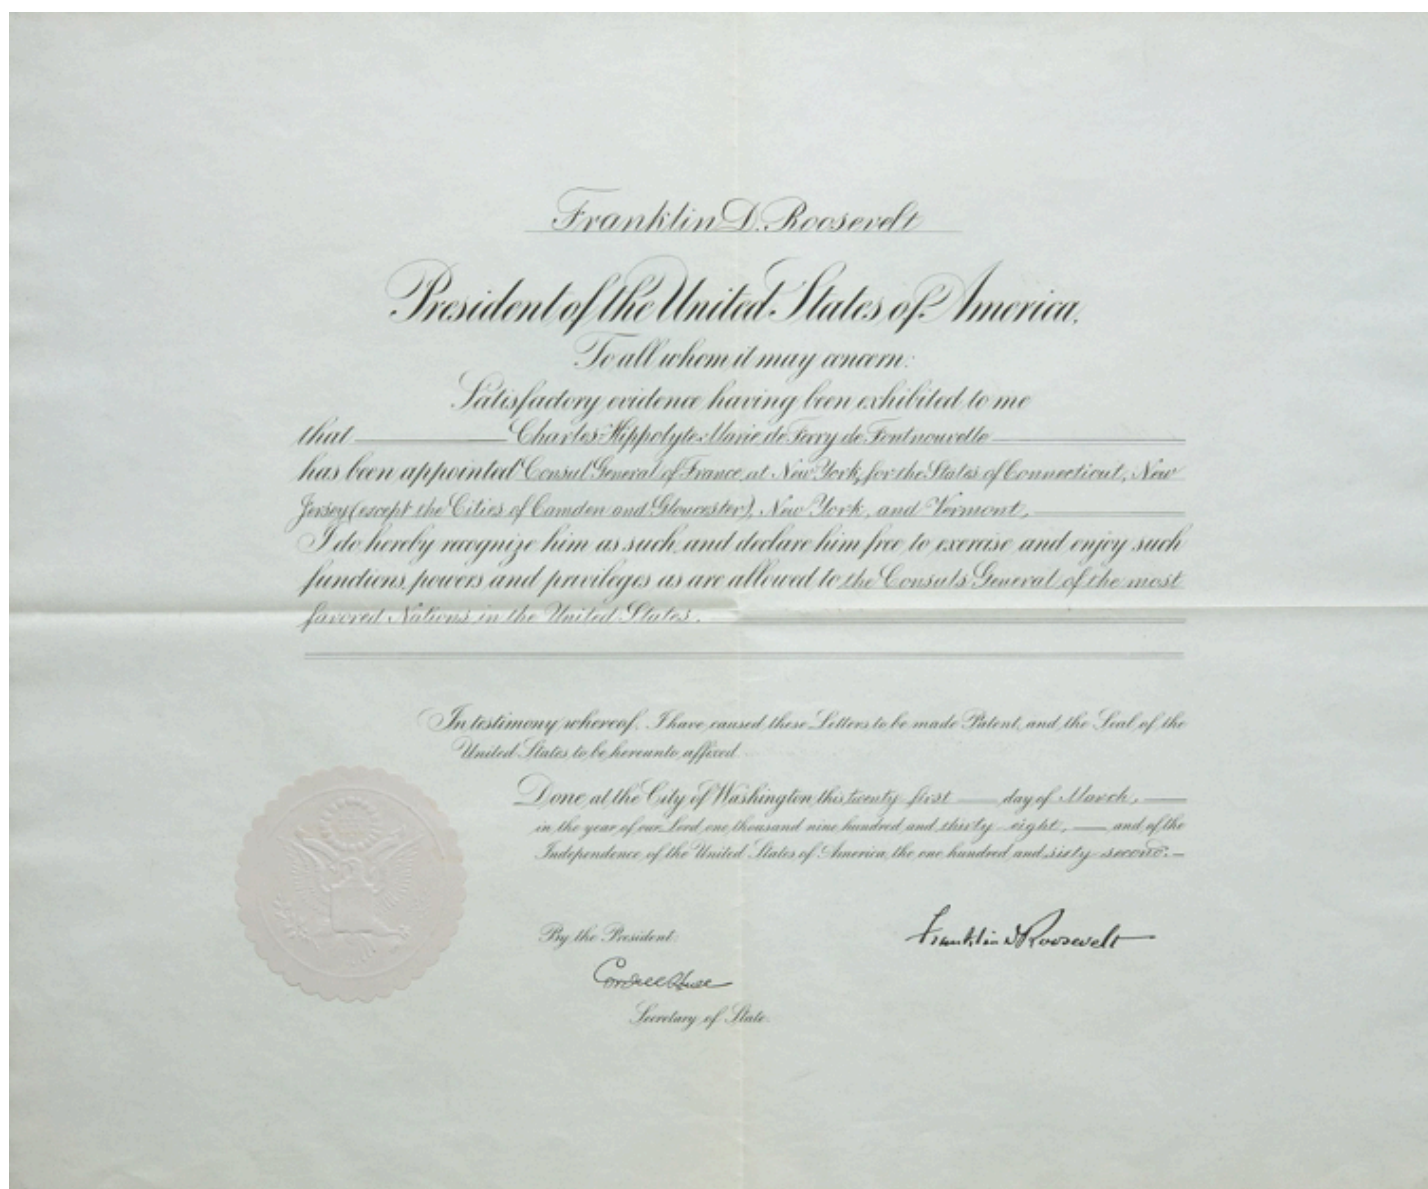 Franklin D. Roosevelt
President of the United States of America,
To all whom it may concern:
Satisfactory evidence having been exhibited to me
that Charles-Hippolyte-Marie de Ferry de Fontnouvelle
has been appointed Consul General of France, at New York, for the States of Connecticut, New
Jersey (except the Cities of Camden and Gloucester), New York, and Vermont,
I do hereby recognize him as such, and declare him free to exercise and enjoy such
functions, powers and privileges as are allowed to the Consuls General of the most
favored Nations in the United States.
In testimony whereof, I have caused these Letters to be made Patent, and the Seal of the
United States to be hereunto affixed.
Done at the City of Washington this twenty-first day of March,
in the year of our Lord one thousand nine hundred and thirty-eight, and of the
Independence of the United States of America, the one hundred and sixty-second.
By the President:
Franklin D Roosevelt
Cordell Hull
Secretary of State.